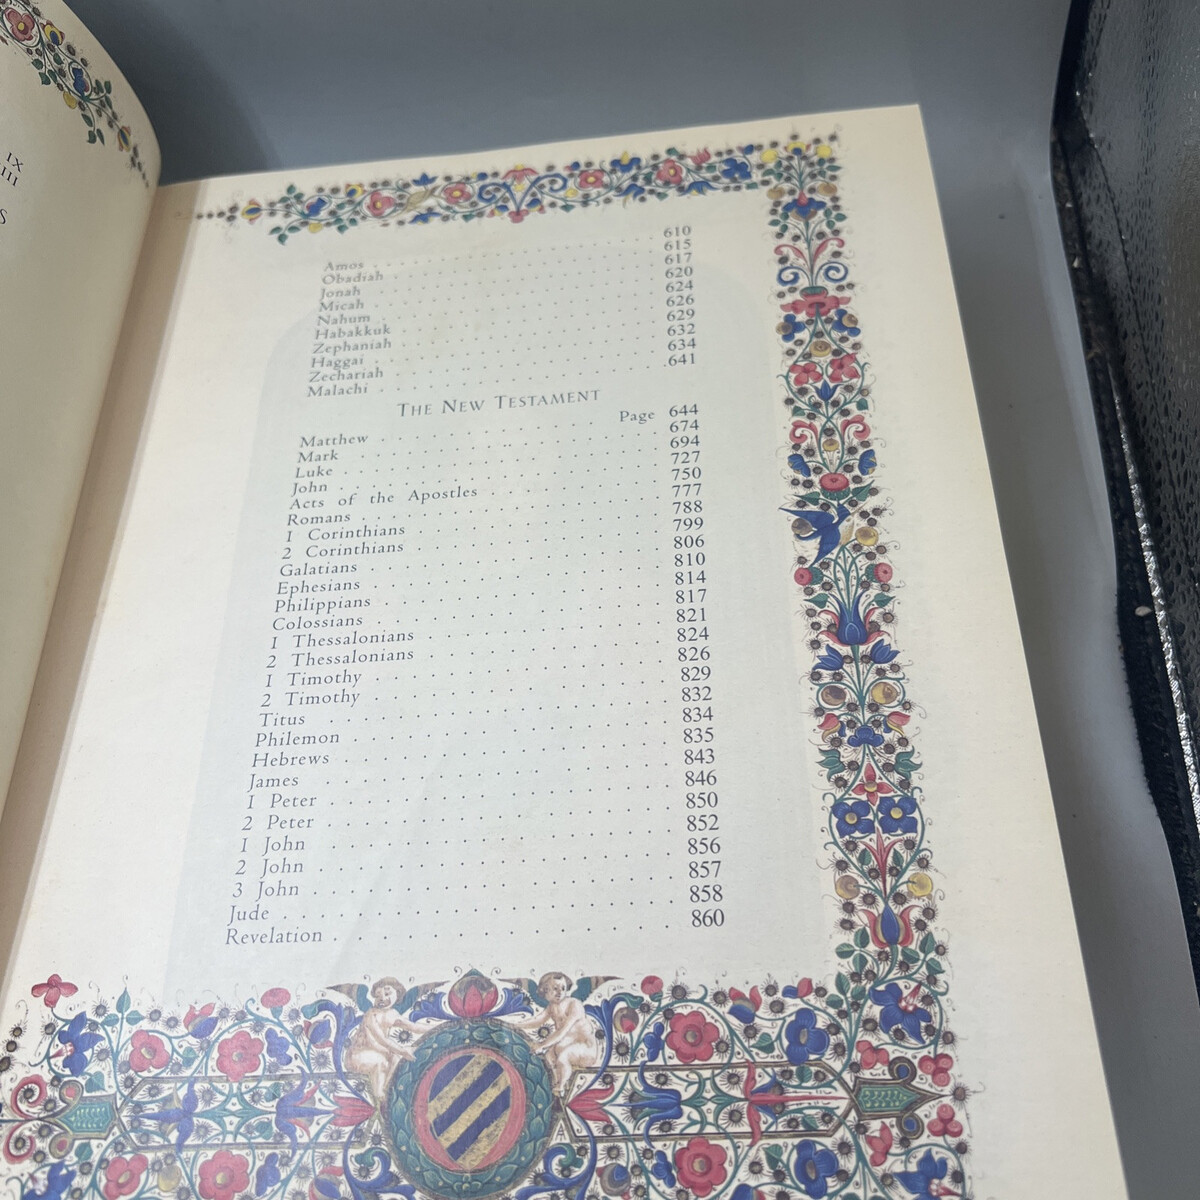 IX
Amos 610
Obadiah 615
Jonah 617
Micah 620
Nahum 624
Habakkuk 626
Zephaniah 629
Haggai 632
Zechariah 634
Malachi 641
THE NEW TESTAMENT
Matthew Page 644
Mark 674
Luke 694
John 727
Acts of the Apostles 750
Romans 777
1 Corinthians 788
2 Corinthians 799
Galatians 806
Ephesians 810
Philippians 814
Colossians 817
1 Thessalonians 821
2 Thessalonians 824
1 Timothy 826
2 Timothy 829
Titus 832
Philemon 834
Hebrews 835
James 843
1 Peter 846
2 Peter 850
1 John 852
2 John 856
3 John 857
Jude 858
Revelation 860